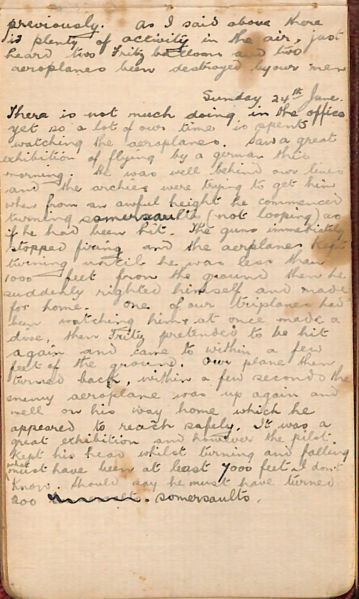 previously. As I said above there
is plenty of activity in the air, just
heard two Fritz balloons and two
aeroplanes been destroyed by our men
Sunday 24th June.
There is not much doing in the office
yet so a lot of our time is spent
watching the aeroplanes. Saw a great
exhibition of flying by a german this
morning. He was well behind our lines
and the archies were trying to get him
when from an awful height he commenced
turning somersaults (not looping) as
if he had been hit. The guns immediately
stopped firing and the aerplane kept
turning until he was less than
1000 feet from the ground then he
suddenly righted himself and made
for home. One of our triplanes had
been watching him, at once made a
dive, then Fritz pretended to be hit
again and came to within a few
feet of the ground. Our plane then
turned back, within a few seconds the
enemy aeroplane was up again and
well on his way home which he
appeared to reach safely. It was a
great exhibition and however the pilot
kept his head whilst turning and falling
what must have been at least 7000 feet I don't
know. Should say he must have turned
200 somersaults.